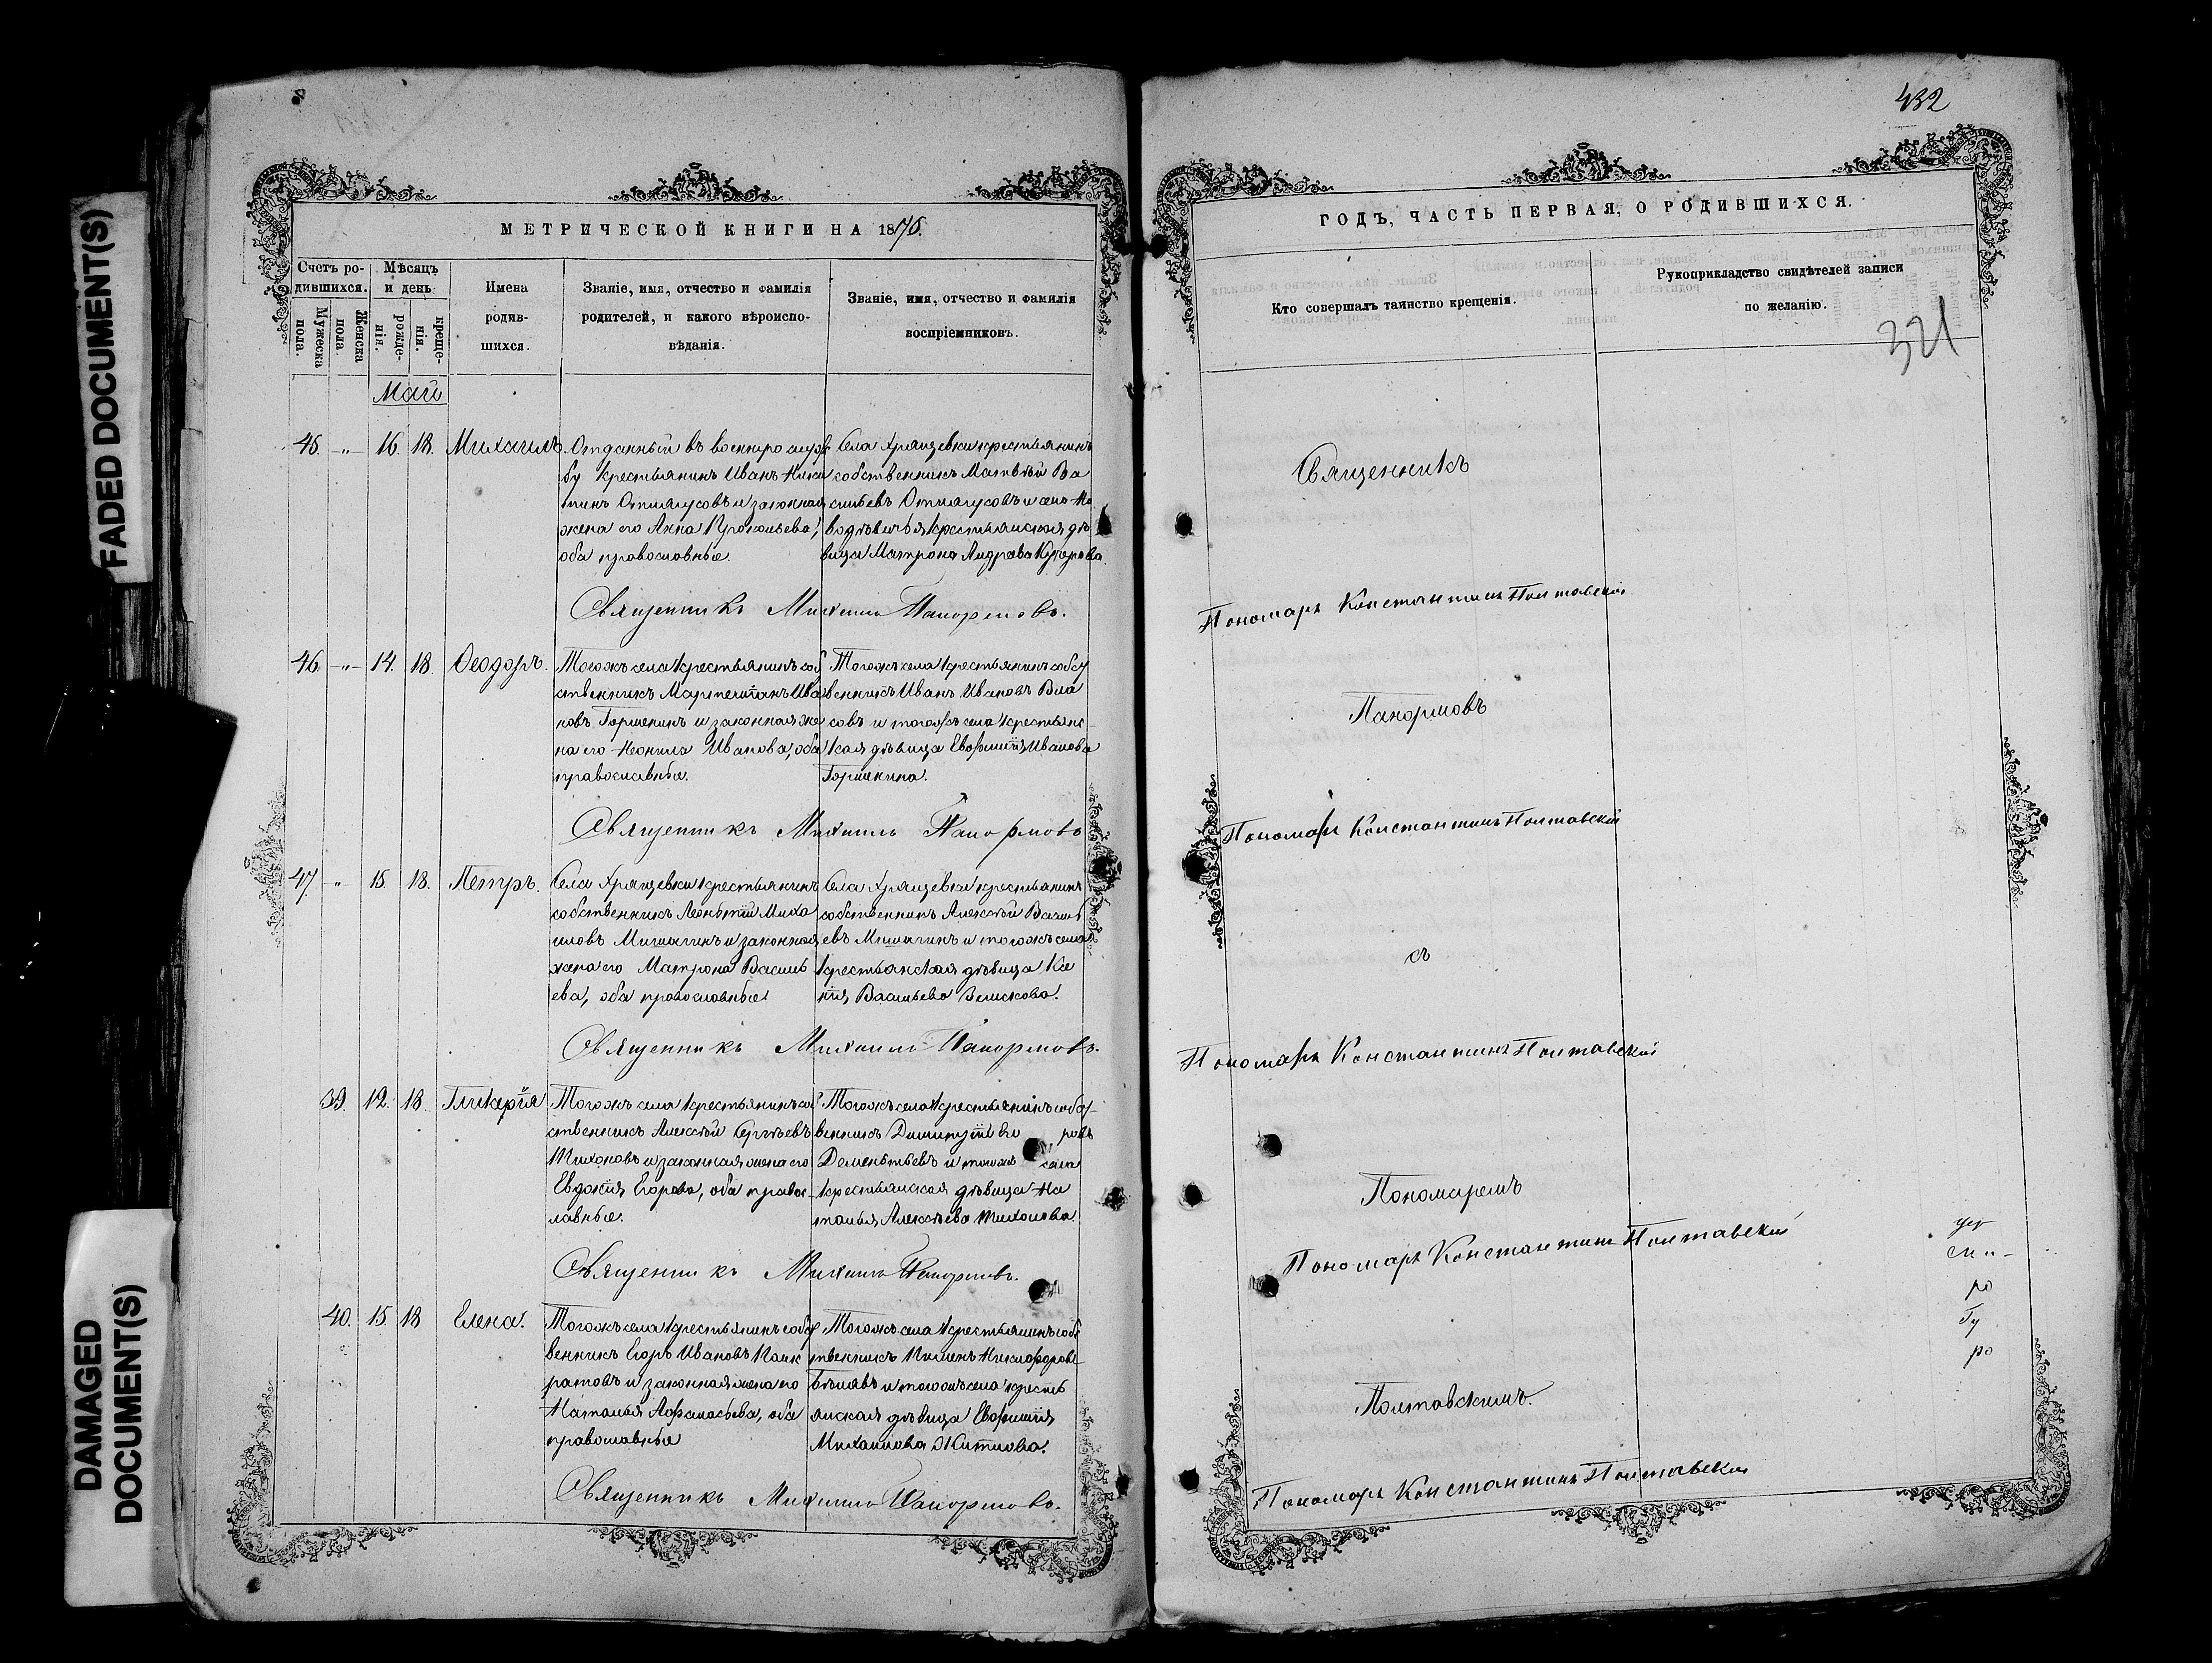 FADED DOCUMENT(S)
DAMAGED
DOCUMENT(S)
МЕТРИЧЕСКОЙ КНИГИ НА 1876.
Счетъ ро-
дившихся.
Мужеска
пола.
Женска
пола.
Мѣсяцъ
и день
рожде-
нія.
креще-
нія.
Имена
родив-
шихся.
Званіе, имя, отчество и фамилія
родителей, и какого вѣроиспо-
вѣданія.
Званіе, имя, отчество и фамилія
воспріемниковъ.
Май
45. -"- 16. 18. Михаилъ.
Отданный въ военную служ
бу крестьянинъ Иванъ Ники
тинъ и законная
жена его Анна Прокопьева,
оба православные.
Села Хрящевки крестьянинъ
собственникъ Матвѣй Ва
сильевъ и села
крестьянская дѣ
вица Матрона
Священникъ Михаилъ Панормовъ.
46. -"- 14. 18. Ѳеодоръ.
Тогожъ села крестьянинъ соб
ственникъ Ива
новъ Горшенинъ и законная же
на его Неонила Иванова, оба
православные.
Тогожъ села крестьянинъ собст
венникъ Иванъ Ивановъ Вла
совъ и тогожъ села крестьянс-
кая дѣвица Евфимія Иванова
Горшенина.
Священникъ Михаилъ Панормовъ
47. " 15. 18. Петръ.
Села Хрящевки крестьянинъ
собственникъ Леонтій Миха
иловъ Мишагинъ и законная
жена его Матрона Василь
ева, оба православные
Села Хрящевки крестьянинъ
собственникъ Алексѣй Василь
евъ Мишагинъ и тогожъ села
крестьянская дѣвица Ксе
нія Васильева
Священникъ Михаилъ Панормовъ.
39. 12. 18. Гликерія
Тогожъ села крестьянинъ соб
ственникъ Алексѣй Сергѣевъ
Тихоновъ и законная жена его
Евдокія Егорова, оба правос-
лавные.
Тогожъ села крестьянинъ собст-
венникъ Димитрій ровъ
Дементьевъ и тогожъ села
крестьянская дѣвица На
талья Алексѣева Тихонова
Священникъ Михаилъ Панормовъ.
40. 15 18 Елена.
Тогожъ села крестьянинъ собст
венникъ Егоръ Ивановъ Панк
ратовъ и законная жена его
Наталья Аѳанасьева, оба
православные
Тогожъ села крестьянинъ соб
ственникъ Пименъ Никифоровъ
Бѣляевъ и тогожъ села кресть
янская дѣвица Евфимія
Михайлова Житлова.
Священникъ Михаилъ Панормовъ.
432
ГОДЪ, ЧАСТЬ ПЕРВАЯ, О РОДИВШИХСЯ.
Кто совершалъ таинство крещенія.
Рукоприкладство свидѣтелей записи
по желанію.
321
Священникъ
Пономарь Константинъ Полтавскій
Панормовъ
Пономарь Константинъ Полтавскій
съ
Пономарь Константинъ Полтавскій
Пономаремъ
Пономарь Константинъ Полтавскій
Полтавскимъ.
Пономарь Константинъ Полтавскій
ро
ро